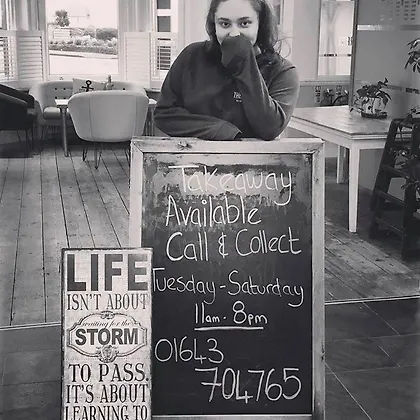 Takeaway
Available
Call & Collect
Tuesday - Saturday
11am - 8pm
01643
704765
LIFE
ISN'T ABOUT
waiting for the
STORM
TO PASS
IT'S ABOUT
LEARNING TO